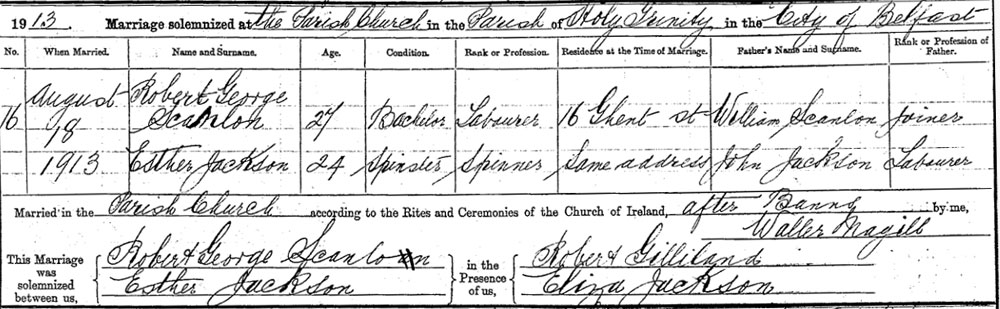 1913. Marriage solemnized at the Parish Church in the Parish of Holy Trinity in the City of Belfast
No. When Married. Name and Surname. Age. Condition. Rank or Profession. Residence at the Time of Marriage. Father's Name and Surname. Rank or Profession of Father.
16 August 18 1913 Robert George Scanlon 27 Bachelor Labourer 16 Ghent St William Scanlon Joiner
Esther Jackson 24 Spinster Spinner Same address John Jackson Labourer
Married in the Parish Church according to the Rites and Ceremonies of the Church of Ireland, after Banns by me,
Waller Magill
This Marriage was solemnized between us, Robert George Scanlon
Esther Jackson
in the Presence of us, Robert Gilliland
Eliza Jackson